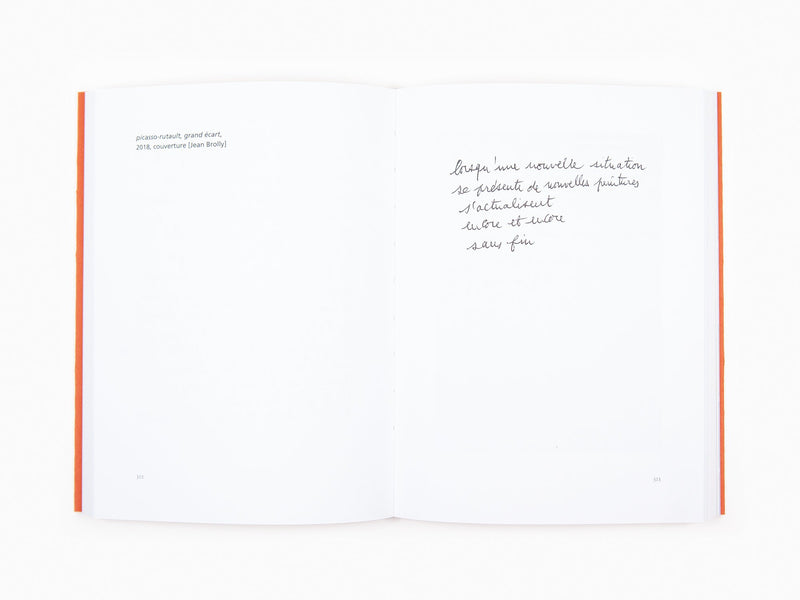 picasso-rutault, grand écart,
2018, couverture [Jean Brolly]
lorsqu'une nouvelle situation
se présente de nouvelles peintures
s'actualisent
encore et encore
sans fin